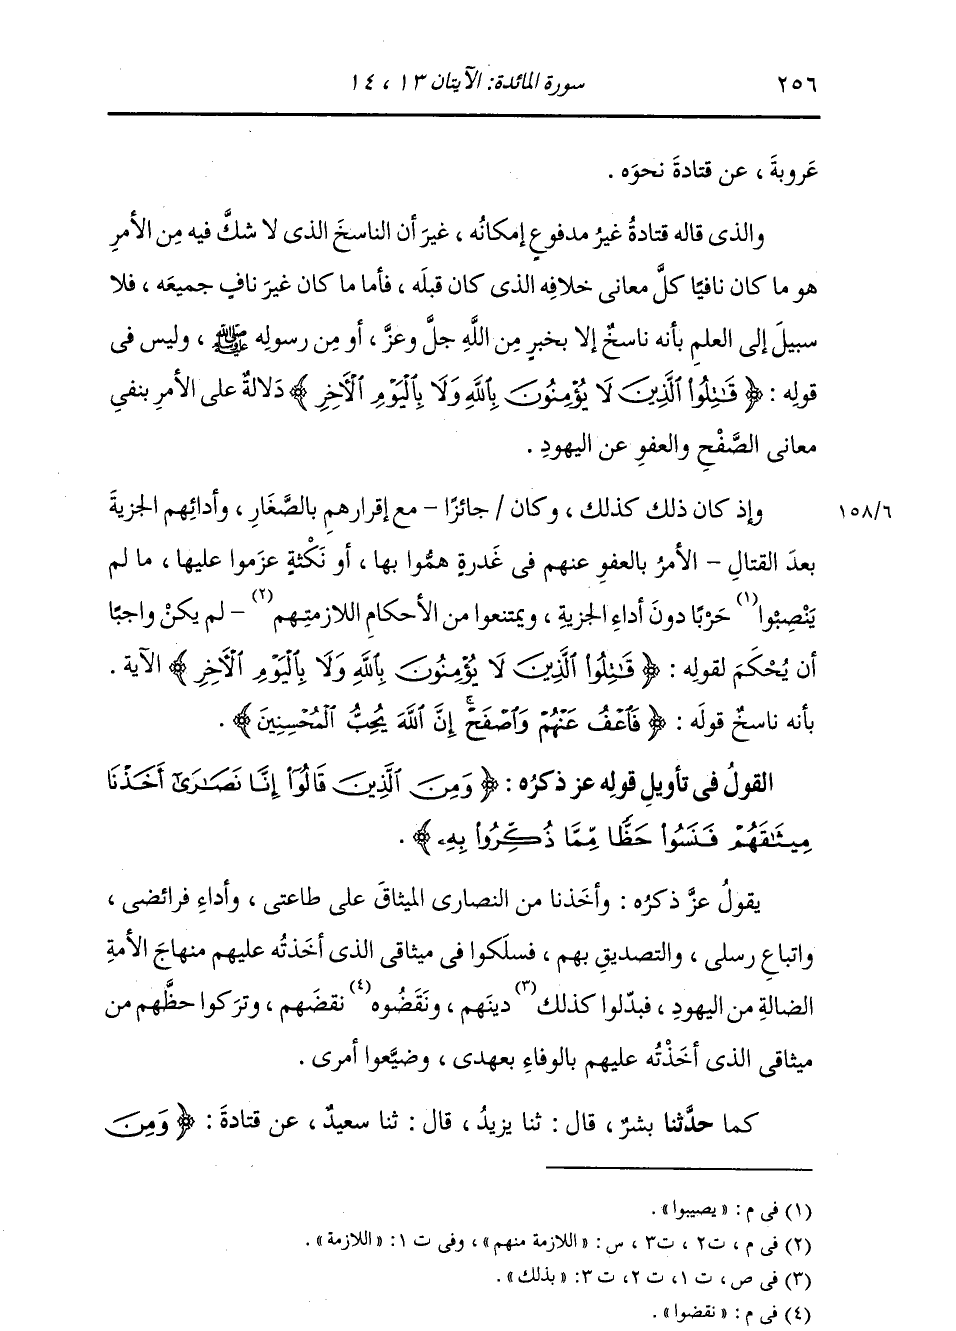 ٢٥٦ سورة المائدة: الآيتان ١٣ ، ١٤
عَروبةَ ، عن قتادةَ نحوَه .
والذى قاله قتادةُ غيرُ مدفوعٍ إمكانُه ، غيرَ أن الناسخَ الذى لا شكَّ فيه مِن الأمرِ
هو ما كان نافيًا كلَّ معانى خلافِه الذى كان قبلَه ، فأما ما كان غيرَ نافٍ جميعَه ، فلا
سبيلَ إلى العلمِ بأنه ناسخٌ إلا بخبرٍ مِن اللَّهِ جلَّ وعزَّ ، أو مِن رسولِه ﷺ ، وليس فى
قولِه : ﴿ قَـٰتِلُوا۟ ٱلَّذِينَ لَا يُؤْمِنُونَ بِٱللَّهِ وَلَا بِٱلْيَوْمِ ٱلْـَٔاخِرِ ﴾ دَلالةٌ على الأمرِ بنفىِ
معانى الصَّفْحِ والعفوِ عن اليهودِ .
١٥٨/٦ وإذ كان ذلك كذلك ، وكان / جائزًا – مع إقرارِهم بالصَّغَارِ ، وأدائِهم الجزيةَ
بعدَ القتالِ – الأمرُ بالعفوِ عنهم فى غَدرةٍ همُّوا بها ، أو نَكْثةٍ عزَموا عليها ، ما لم
يَنْصِبُوا(١) حَرْبًا دونَ أداءِ الجزيةِ ، ويمتنعوا من الأحكامِ اللازمتِهم(٢) – لم يكنْ واجبًا
أن يُحْكَمَ لقولِه : ﴿ قَـٰتِلُوا۟ ٱلَّذِينَ لَا يُؤْمِنُونَ بِٱللَّهِ وَلَا بِٱلْيَوْمِ ٱلْـَٔاخِرِ ﴾ الآية .
بأنه ناسخٌ قولَه : ﴿ فَٱعْفُ عَنْهُمْ وَٱصْفَحْ ۚ إِنَّ ٱللَّهَ يُحِبُّ ٱلْمُحْسِنِينَ ﴾ .
القولُ فى تأويلِ قولِه عز ذكرُه : ﴿ وَمِنَ ٱلَّذِينَ قَالُوٓا۟ إِنَّا نَصَـٰرَىٰٓ أَخَذْنَا
مِيثَـٰقَهُمْ فَنَسُوا۟ حَظًّا مِّمَّا ذُكِّرُوا۟ بِهِۦ ﴾ .
يقولُ عزَّ ذكرُه : وأخَذنا من النصارى الميثاقَ على طاعتى ، وأداءِ فرائضى ،
واتباعِ رسلى ، والتصديقِ بهم ، فسلَكوا فى ميثاقى الذى أخَذتُه عليهم منهاجَ الأمةِ
الضالةِ من اليهودِ ، فبدّلوا كذلك(٣) دينَهم ، ونَقَضُوه(٤) نقضَهم ، وترَكوا حظَّهم من
ميثاقى الذى أخَذْتُه عليهم بالوفاءِ بعهدى ، وضيَّعوا أمرى .
كما حدَّثنا بشرٌ ، قال : ثنا يزيدُ ، قال : ثنا سعيدٌ ، عن قتادةَ : ﴿ وَمِنَ
(١) فى م : « يصيبوا » .
(٢) فى م ، ت٢ ، ت٣ ، س : « اللازمة منهم » ، وفى ت ١ : « اللازمة » .
(٣) فى ص ، ت ١ ، ت ٢ ، ت ٣ : « بذلك » .
(٤) فى م : « نقضوا » .